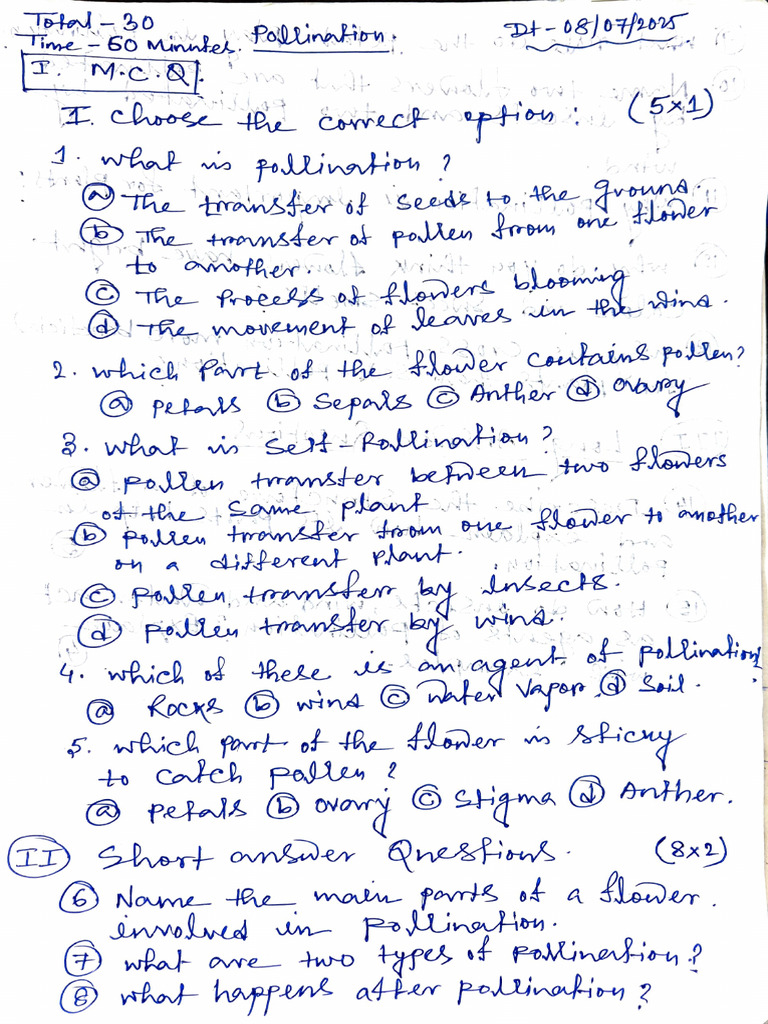 Total - 30
Time - 60 Minutes. Pollination. Dt - 08/07/2025
I. M.C.Q.
I. Choose the correct option: (5x1)
1. What is pollination?
(a) The transfer of seeds to the ground.
(b) The transfer of pollen from one flower
to another.
(c) The process of flowers blooming
(d) The movement of leaves in the wind.
2. Which part of the flower contains pollen?
(a) Petals (b) Sepals (c) Anther (d) Ovary
3. What is self-Pollination?
(a) pollen transfer between two flowers
of the same plant
(b) pollen transfer from one flower to another
on a different plant.
(c) pollen transfer by Insects.
(d) pollen transfer by wind.
4. which of these is an agent of pollination?
(a) Rocks (b) wind (c) water vapor (d) Soil.
5. which part of the flower is sticky
to catch pollen?
(a) petals (b) ovary (c) Stigma (d) Anther.
(II) Short answer Questions. (8x2)
(6) Name the main parts of a flower.
involved in pollination.
(7) what are two types of pollination?
(8) what happens after pollination?